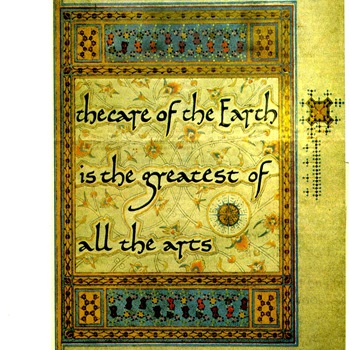 the care of the Earth
is the greatest of
all the arts